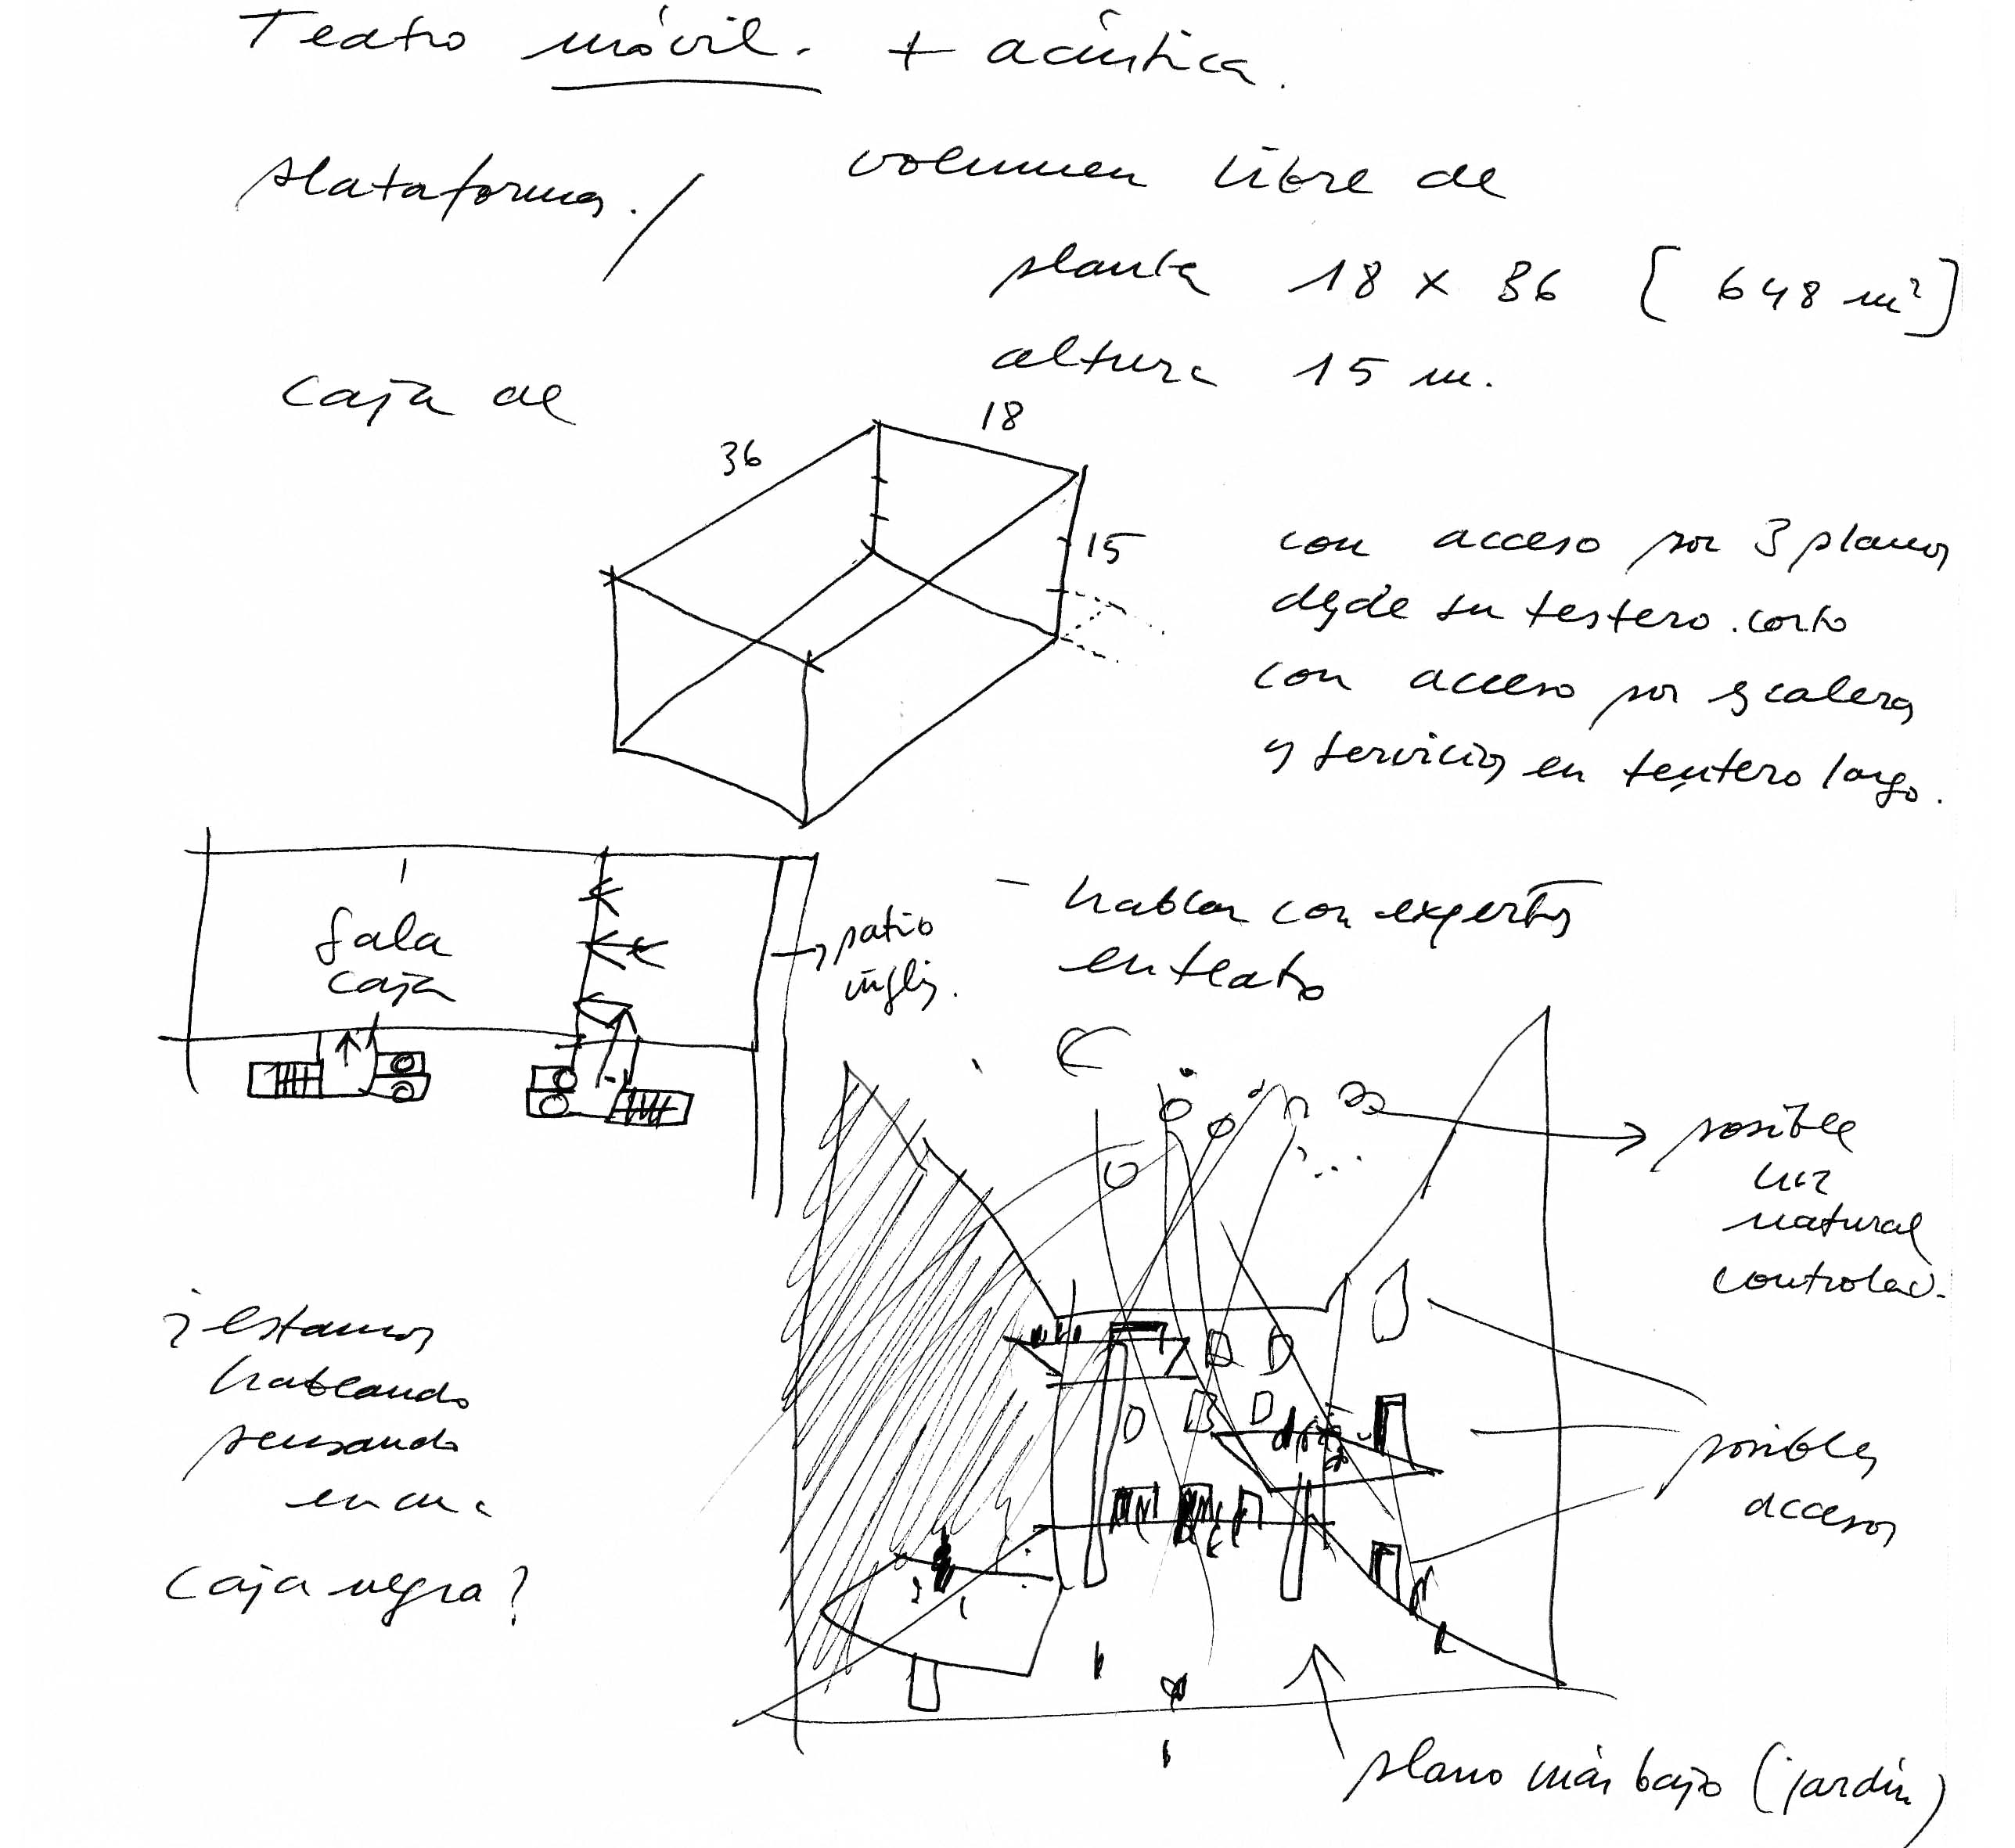 Teatro móvil. + acústica.
plataforma. /
volumen libre de
planta 18 x 36 [ 648 m²]
altura 15 m.
caja de
18
36
15
con acceso por 3 planos
desde su testero corto
con acceso por escalera
y servicios en testero largo.
sala
caja
patio
inglés.
- hablar con expertos
en teatro
posible
luz
natural
controlad.
¿estamos
hablando
pensando
en una
caja negra?
posibles
accesos
plano más bajo (jardín)